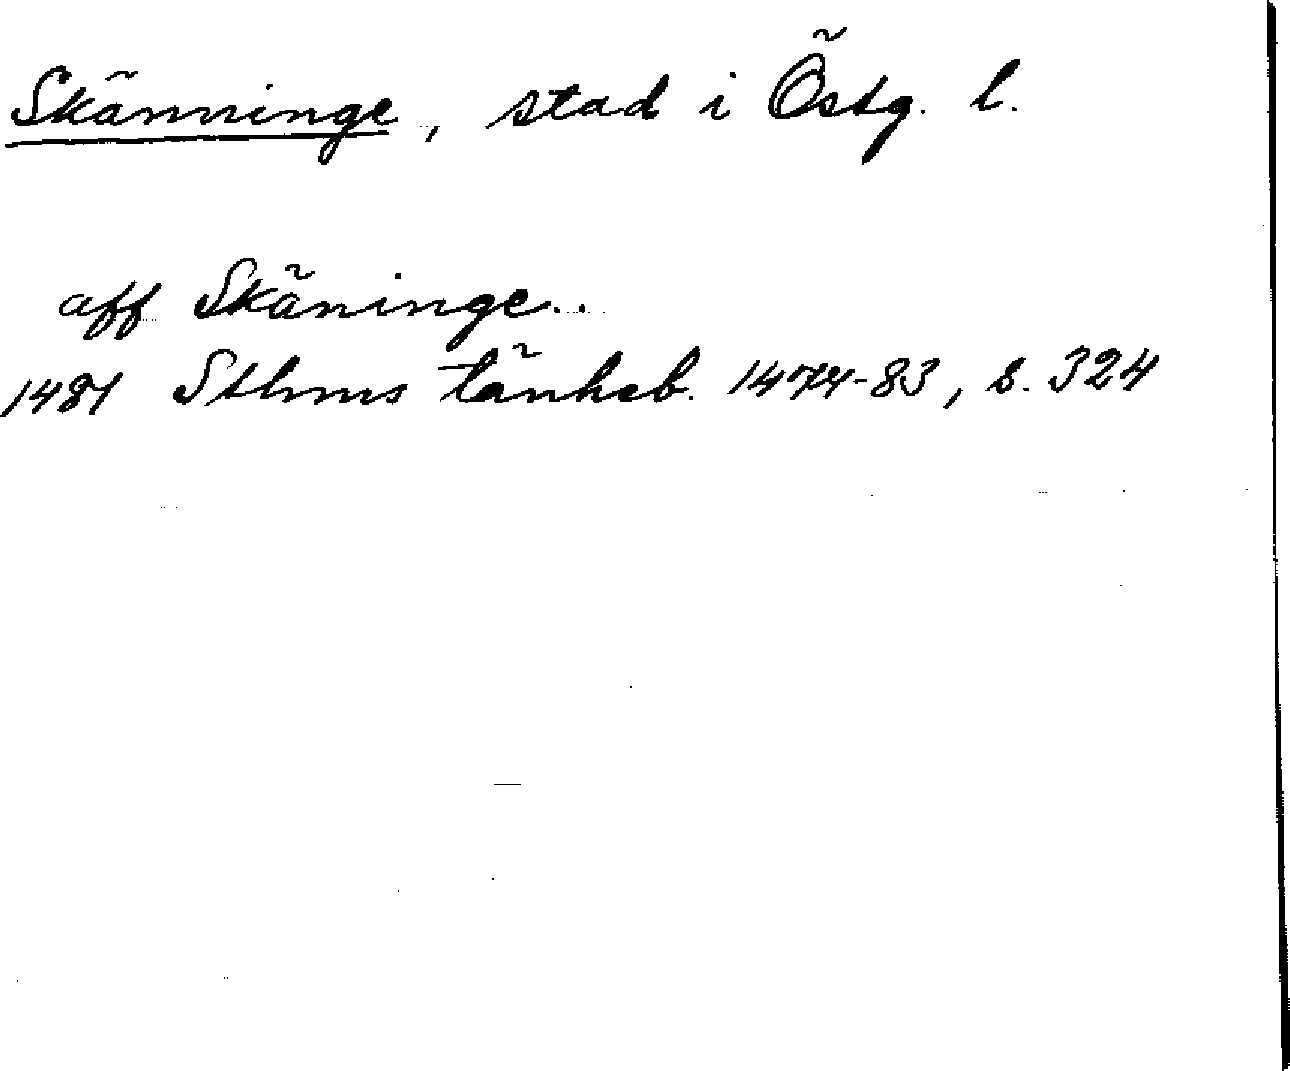 Skänninge, stad i Östg. l.
aff Skäninge..
1481 Sthms tänkeb. 1474-83, s. 324